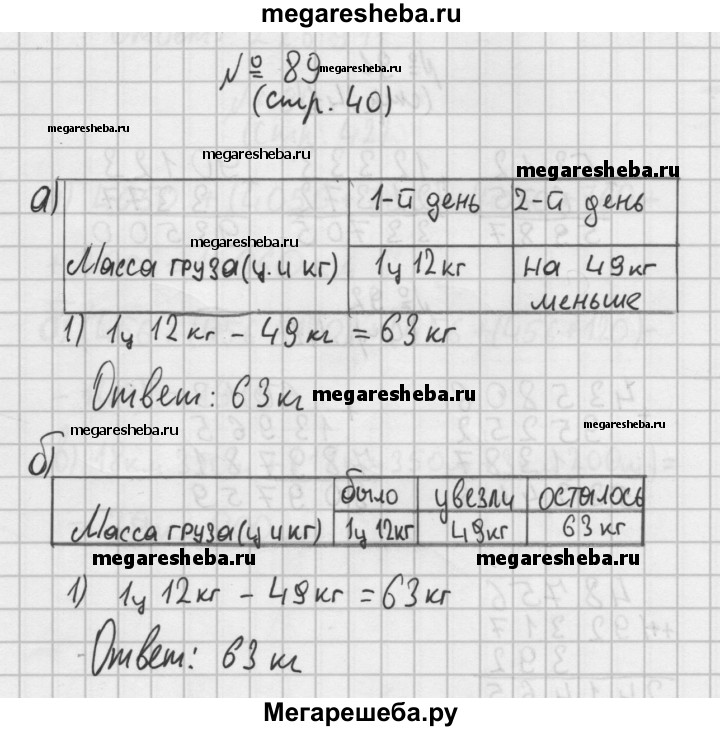 megaresheba.ru
№ 89 megaresheba.ru
(стр. 40)
megaresheba.ru
megaresheba.ru
megaresheba.ru
а) 1-й день 2-й день
megaresheba.ru
Масса груза (ц. и кг) 1ц 12кг на 49кг меньше
1) 1ц 12кг - 49кг = 63кг
Ответ: 63кг megaresheba.ru
megaresheba.ru megaresheba.ru
б) было увезли осталось
Масса груза (ц и кг) 1ц 12кг 49кг 63кг
megaresheba.ru megaresheba.ru
1) 1ц 12кг - 49кг = 63кг
Ответ: 63 кг
Мегарешеба.ру